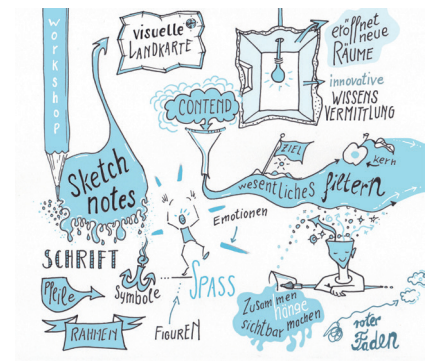 Workshop
visuelle
LANDKARTE
eröffnet
neue
RÄUME
innovative
WISSENS
VERMITTLUNG
CONTEND
ZIEL
kern
wesentliches filtern
Sketch
notes
Emotionen
SCHRIFT
Pfeile
Symbole
SPASS
RAHMEN
FIGUREN
Zusammen
hänge
sichtbar machen
roter
Faden